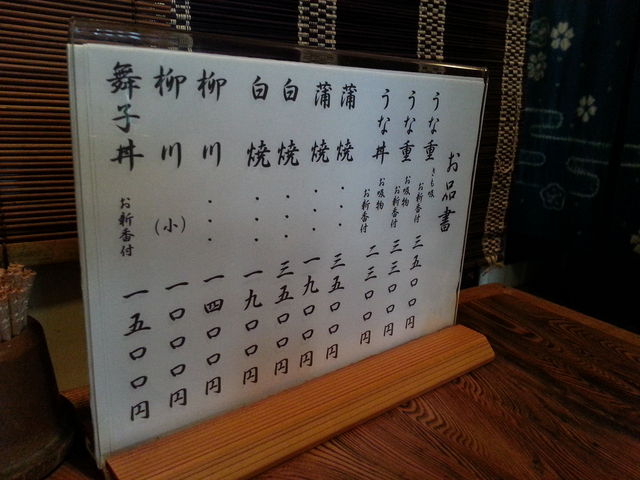 お品書
うな重 きも吸 お新香付 三五〇〇円
うな重 お吸物 お新香付 三三〇〇円
うな丼 お吸物 お新香付 二三〇〇円
蒲焼・・・三五〇〇円
蒲焼・・・一九〇〇円
白焼・・・三五〇〇円
白焼・・・一九〇〇円
柳川・・・一四〇〇円
柳川(小) 一〇〇〇円
舞子丼 お新香付 一五〇〇円